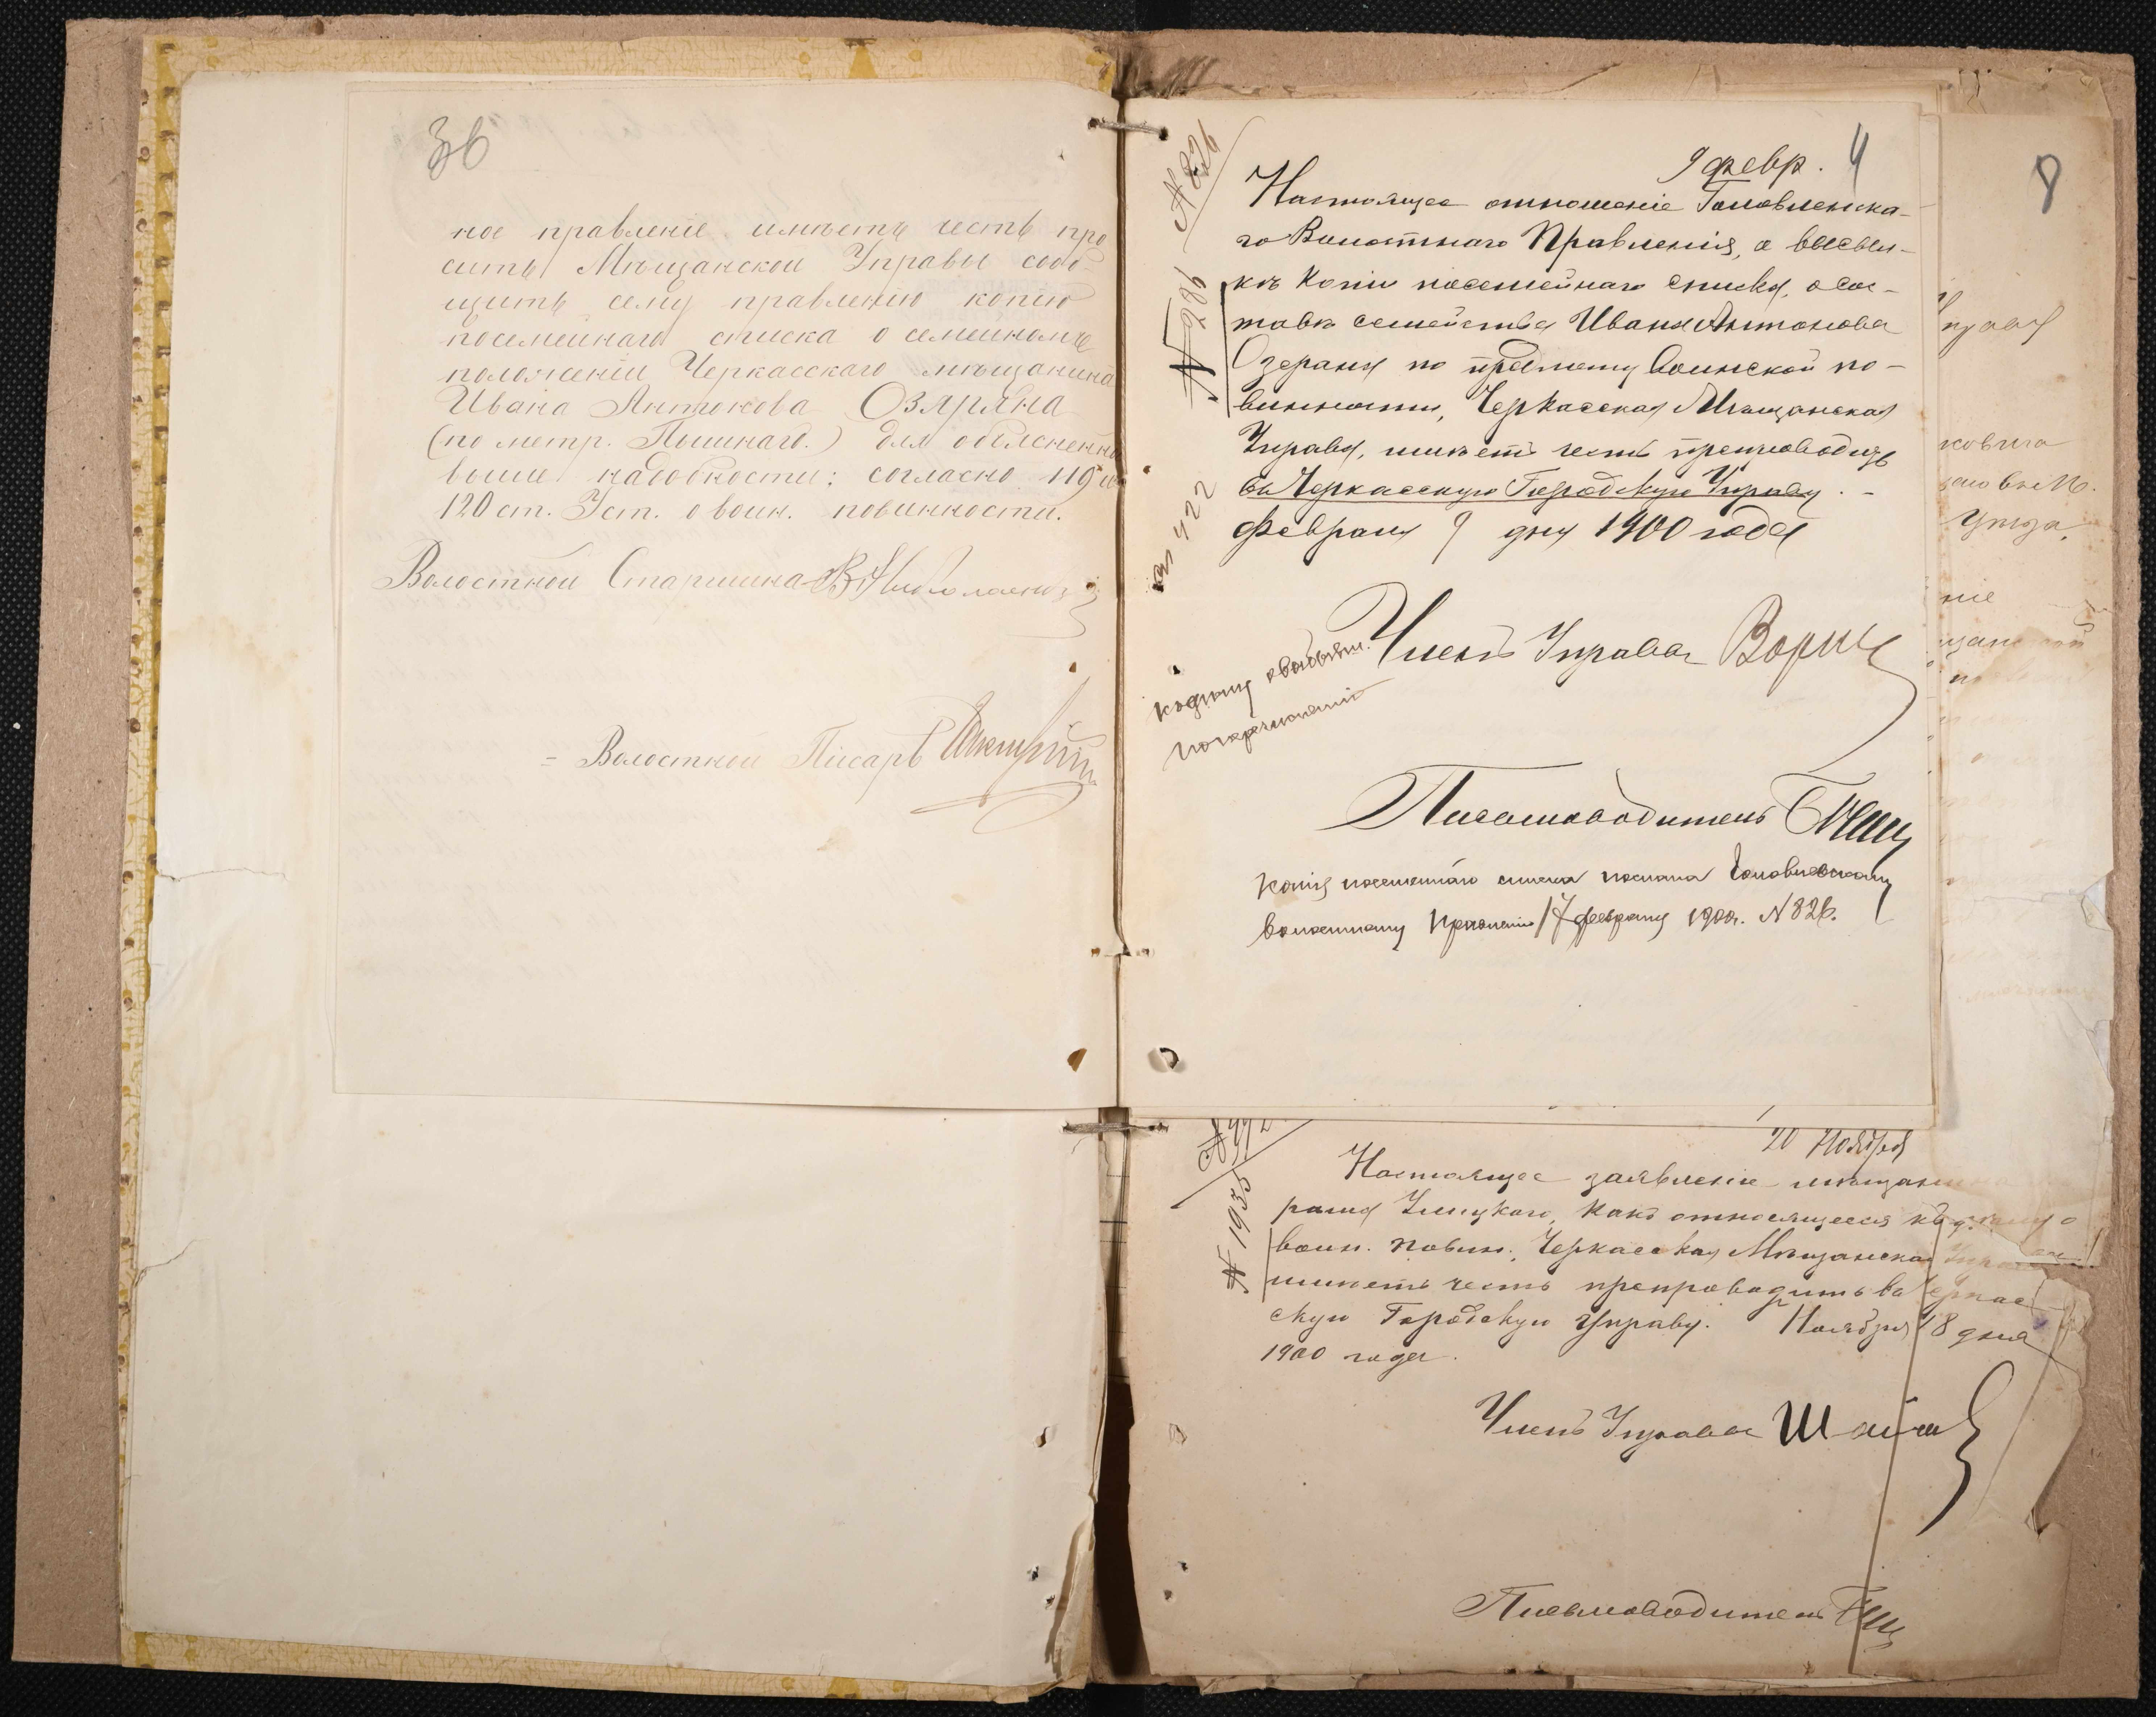 3б
ное правленіе имѣетъ честь про
сить Мѣщанской Управы сооб-
щить сему правленію копію
посемейнаго списка о семейномъ
положеніи Черкасскаго мѣщанина
Ивана Антонова Озяряна
(по метр. Пышнаго.) для объясненной
выше надобности: согласно 119 и
120 ст. Уст. о воин. повинности.
Волостной Старшина
Волостной Писарь
№ 826
9 февр. 4
Настоящее отношеніе Головленска-
го Волостнаго Правленія, о высыл-
кѣ копіи посемейнаго списка, о сос-
тавѣ семейства Ивана Антонова
Озераня по предмету Воинской по-
винности, Черкасская Мѣщанская
Управа, имѣетъ честь препроводить
въ Черкасскую Городскую Управу. -
Февраля 9 дня 1900 года
№ 286
422
Членъ Управы
Письмоводитель
Копія посемейнаго списка послана
волостному Правленію 17 февраля 1900г. № 826.
8
20 Ноября
Настоящее заявленіе мѣщанина
какъ относящееся къ
воин. повин., Черкасская Мѣщанская
имѣетъ честь препроводить въ Черкас
скую Городскую Управу. Ноября 18 дня
1900 года.
№ 1935
Членъ Управы
Письмоводитель